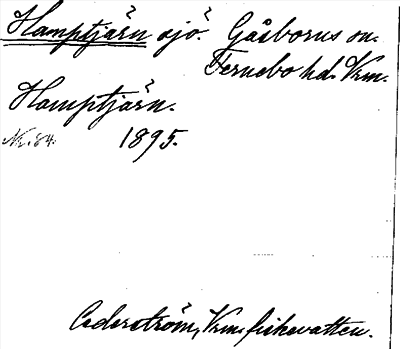 Hamptjärn sjö. Gåsborns sn.
Fernebo hd. Vrm.
Hamptjärn.
Nr. 84. 1895.
Cederström, Vrm. fiskevatten.